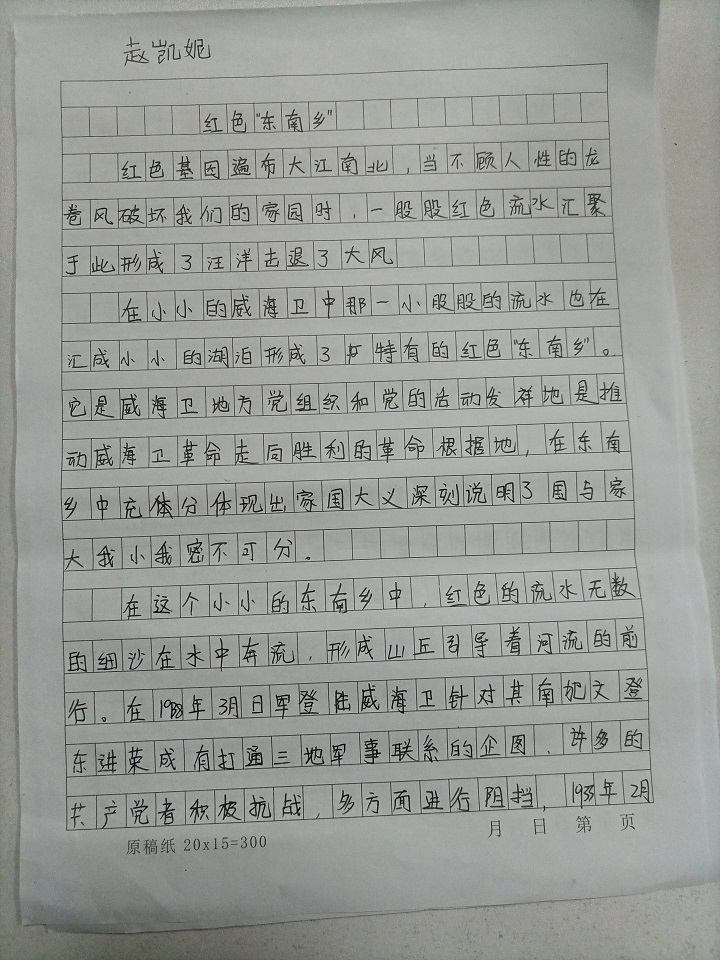 赵凯妮
红色“东南乡”
红色基因遍布大江南北,当不顾人性的龙
卷风破坏我们的家园时,一股股红色流水汇聚
于此形成了汪洋击退了大风
在小小的威海卫中那一小股股的流水也在
汇成小小的湖泊形成了特有的红色“东南乡”。
它是威海卫地方党组织和党的活动发祥地是推
动威海卫革命走向胜利的革命根据地,在东南
乡中充分体现出家国大义深刻说明了国与家
大我小我密不可分。
在这个小小的东南乡中,红色的流水无数
的细沙在水中奔流,形成山丘引导着河流的前
行。在1938年3月日军登陆威海卫针对其南犯文登
东进荣成有打通三地军事联系的企图,许多的
共产党者积极抗战,多方面进行阻挡,年2月
原稿纸 20x15=300 月 日 第 页